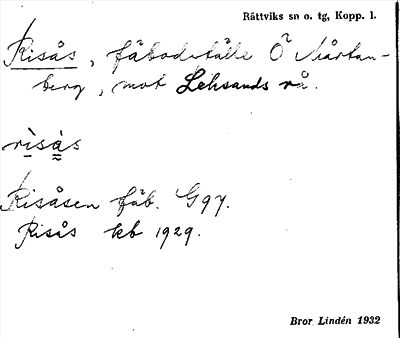 Rättviks sn o. tg, Kopp. l.
Risås, fäbodställe Ö Mårtan-
berg, mot Leksands rå.
rìsås
Risåsen fäb. G97.
Risås kb 1929.
Bror Lindén 1932